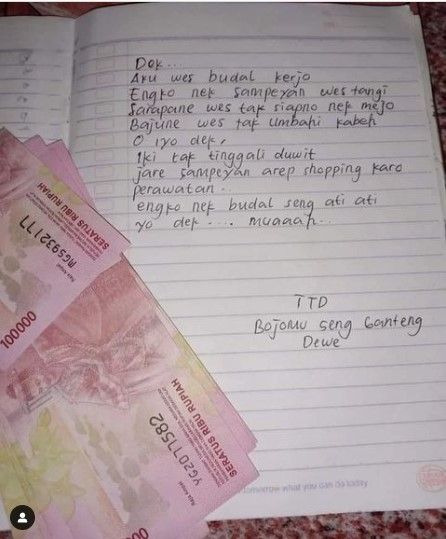 Dek...
Aku wes budal kerjo
Engko nek sampeyan wes tangi
Sarapane wes tak siapno nek mejo
Bajune wes tak umbahi kabeh
O iyo dek,
Iki tak tinggali duwit
jare sampeyan arep shopping karo
perawatan..
engko nek budal seng ati ati
yo dek .... muaaah..
TTD
Bojomu seng Ganteng
Dewe
RG5932177
SERATUS RIBU RUPIAH
100000
YG2071582
SERATUS RIBU RUPIAH
00
tomorrow what you can do today